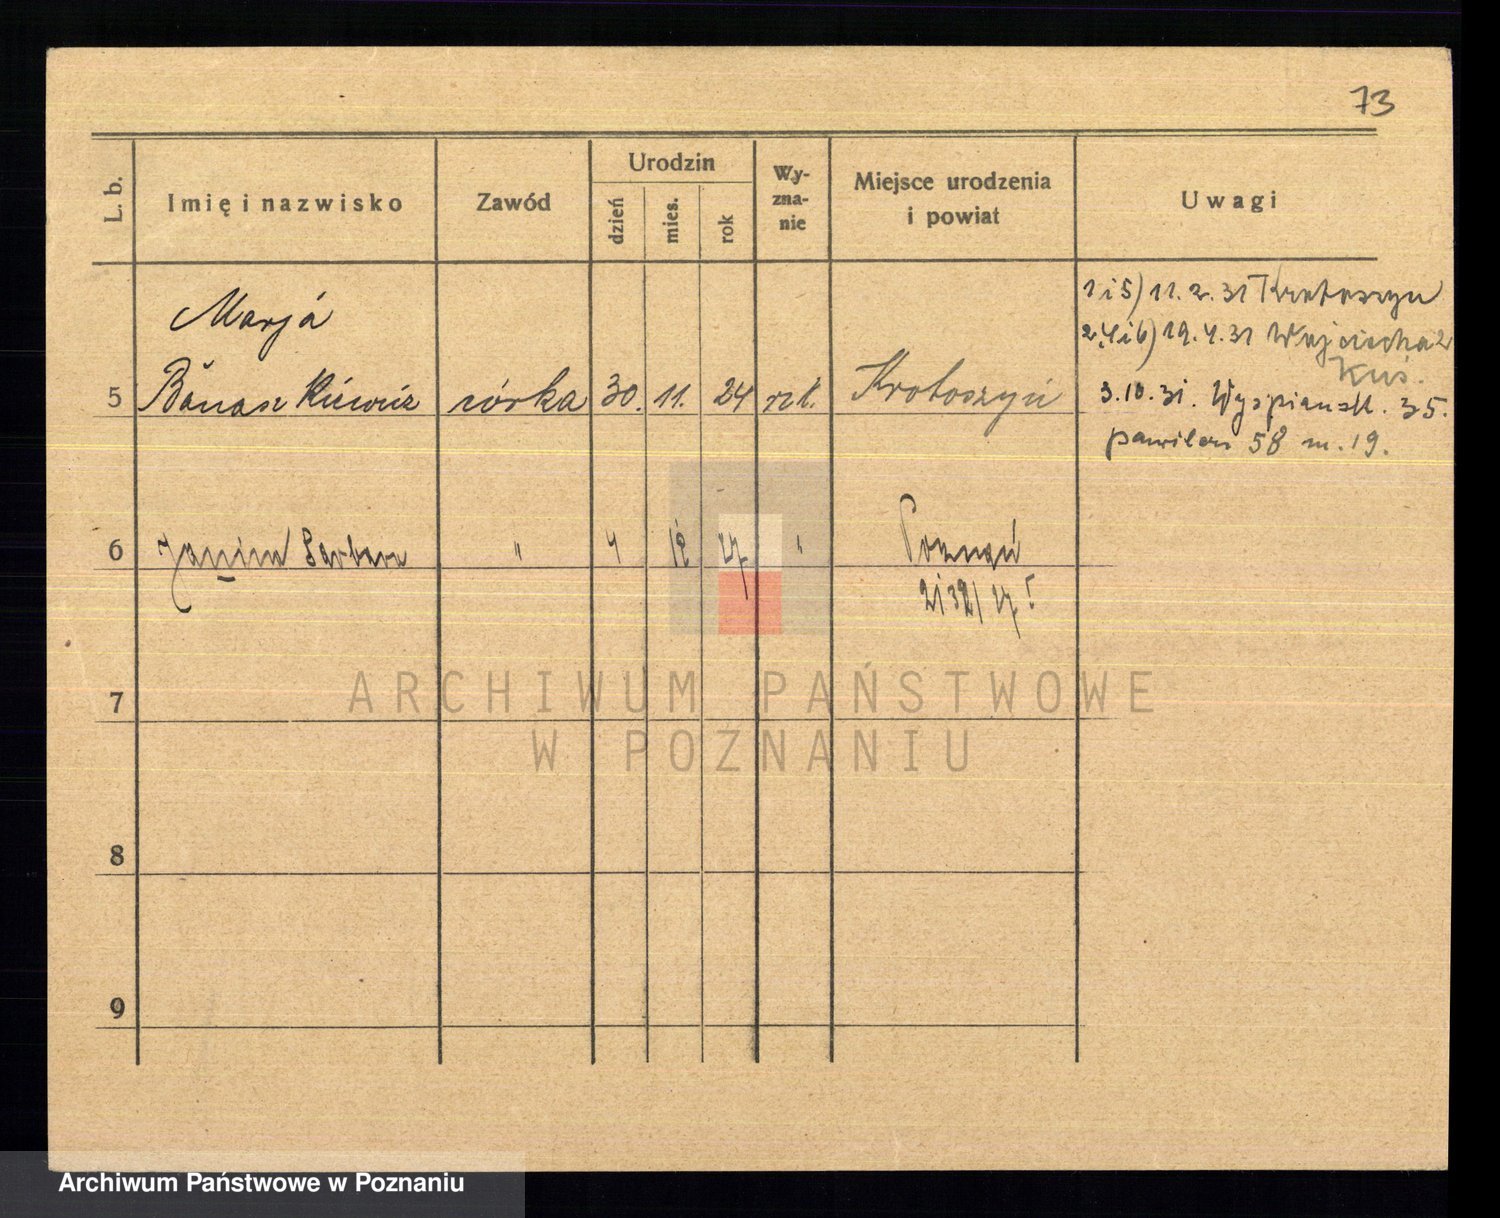 73
L. b.
Imię i nazwisko
Zawód
Urodzin
dzień
mies.
rok
Wy-
zna-
nie
Miejsce urodzenia
i powiat
Uwagi
Marja
5 Banaszkiewicz córka 30. 11. 24 rzk. Krotoszyn
1 i 5) 11. 2. 31 Krotoszyn
2, 4 i 6) 19. 4. 31 Wojciecha 2
Kuś.
3. 10. 31. Wyspiańsk. 35.
pawilon 58 m. 19.
6 Janina Barbara " 4 12 27 " Poznań
27!
7
8
9
ARCHIWUM PAŃSTWOWE
W POZNANIU
Archiwum Państwowe w Poznaniu